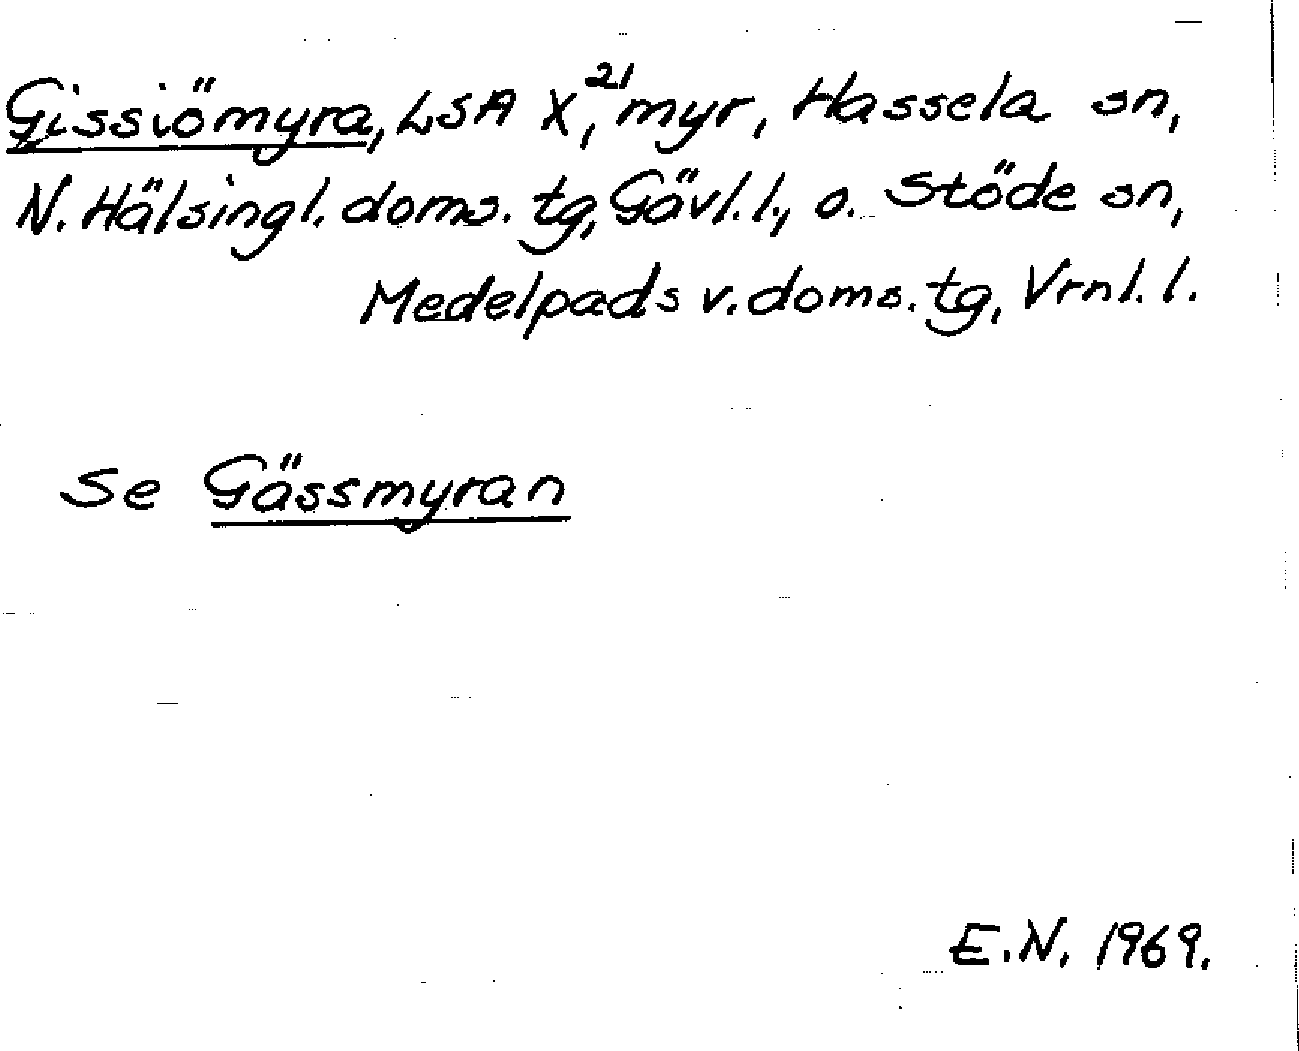 Gissiömyra, LSA X,²¹ myr, Hassela sn,
N. Hälsingl. doms. tg, Gävl. l., o. Stöde sn,
Medelpads v. doms. tg, Vrnl. l.
Se Gässmyran
E.N. 1969.